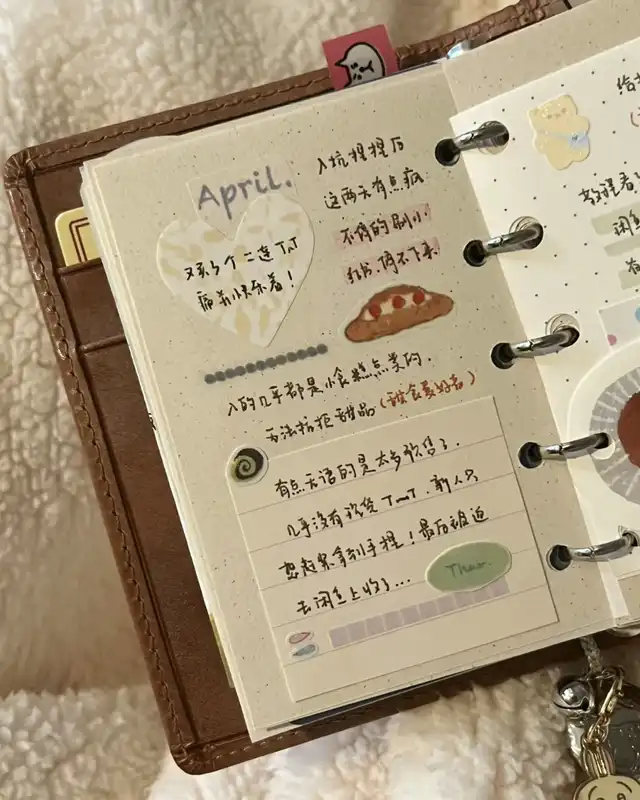 April.
又来了个二连TnT
痛并快乐着!
入坑提提后
这两天有点疯
不停的刷小
红书,停不下来.
入的几乎都是小食糕点类的.
无法抗拒甜品(甜食爱好者)
有点无语的是太多歌售了.
几乎没有现货TmT.新人只
想赶紧拿到手捏!最后被迫
去闲鱼上收了...
Thur.
给
教程看
闲鱼
有